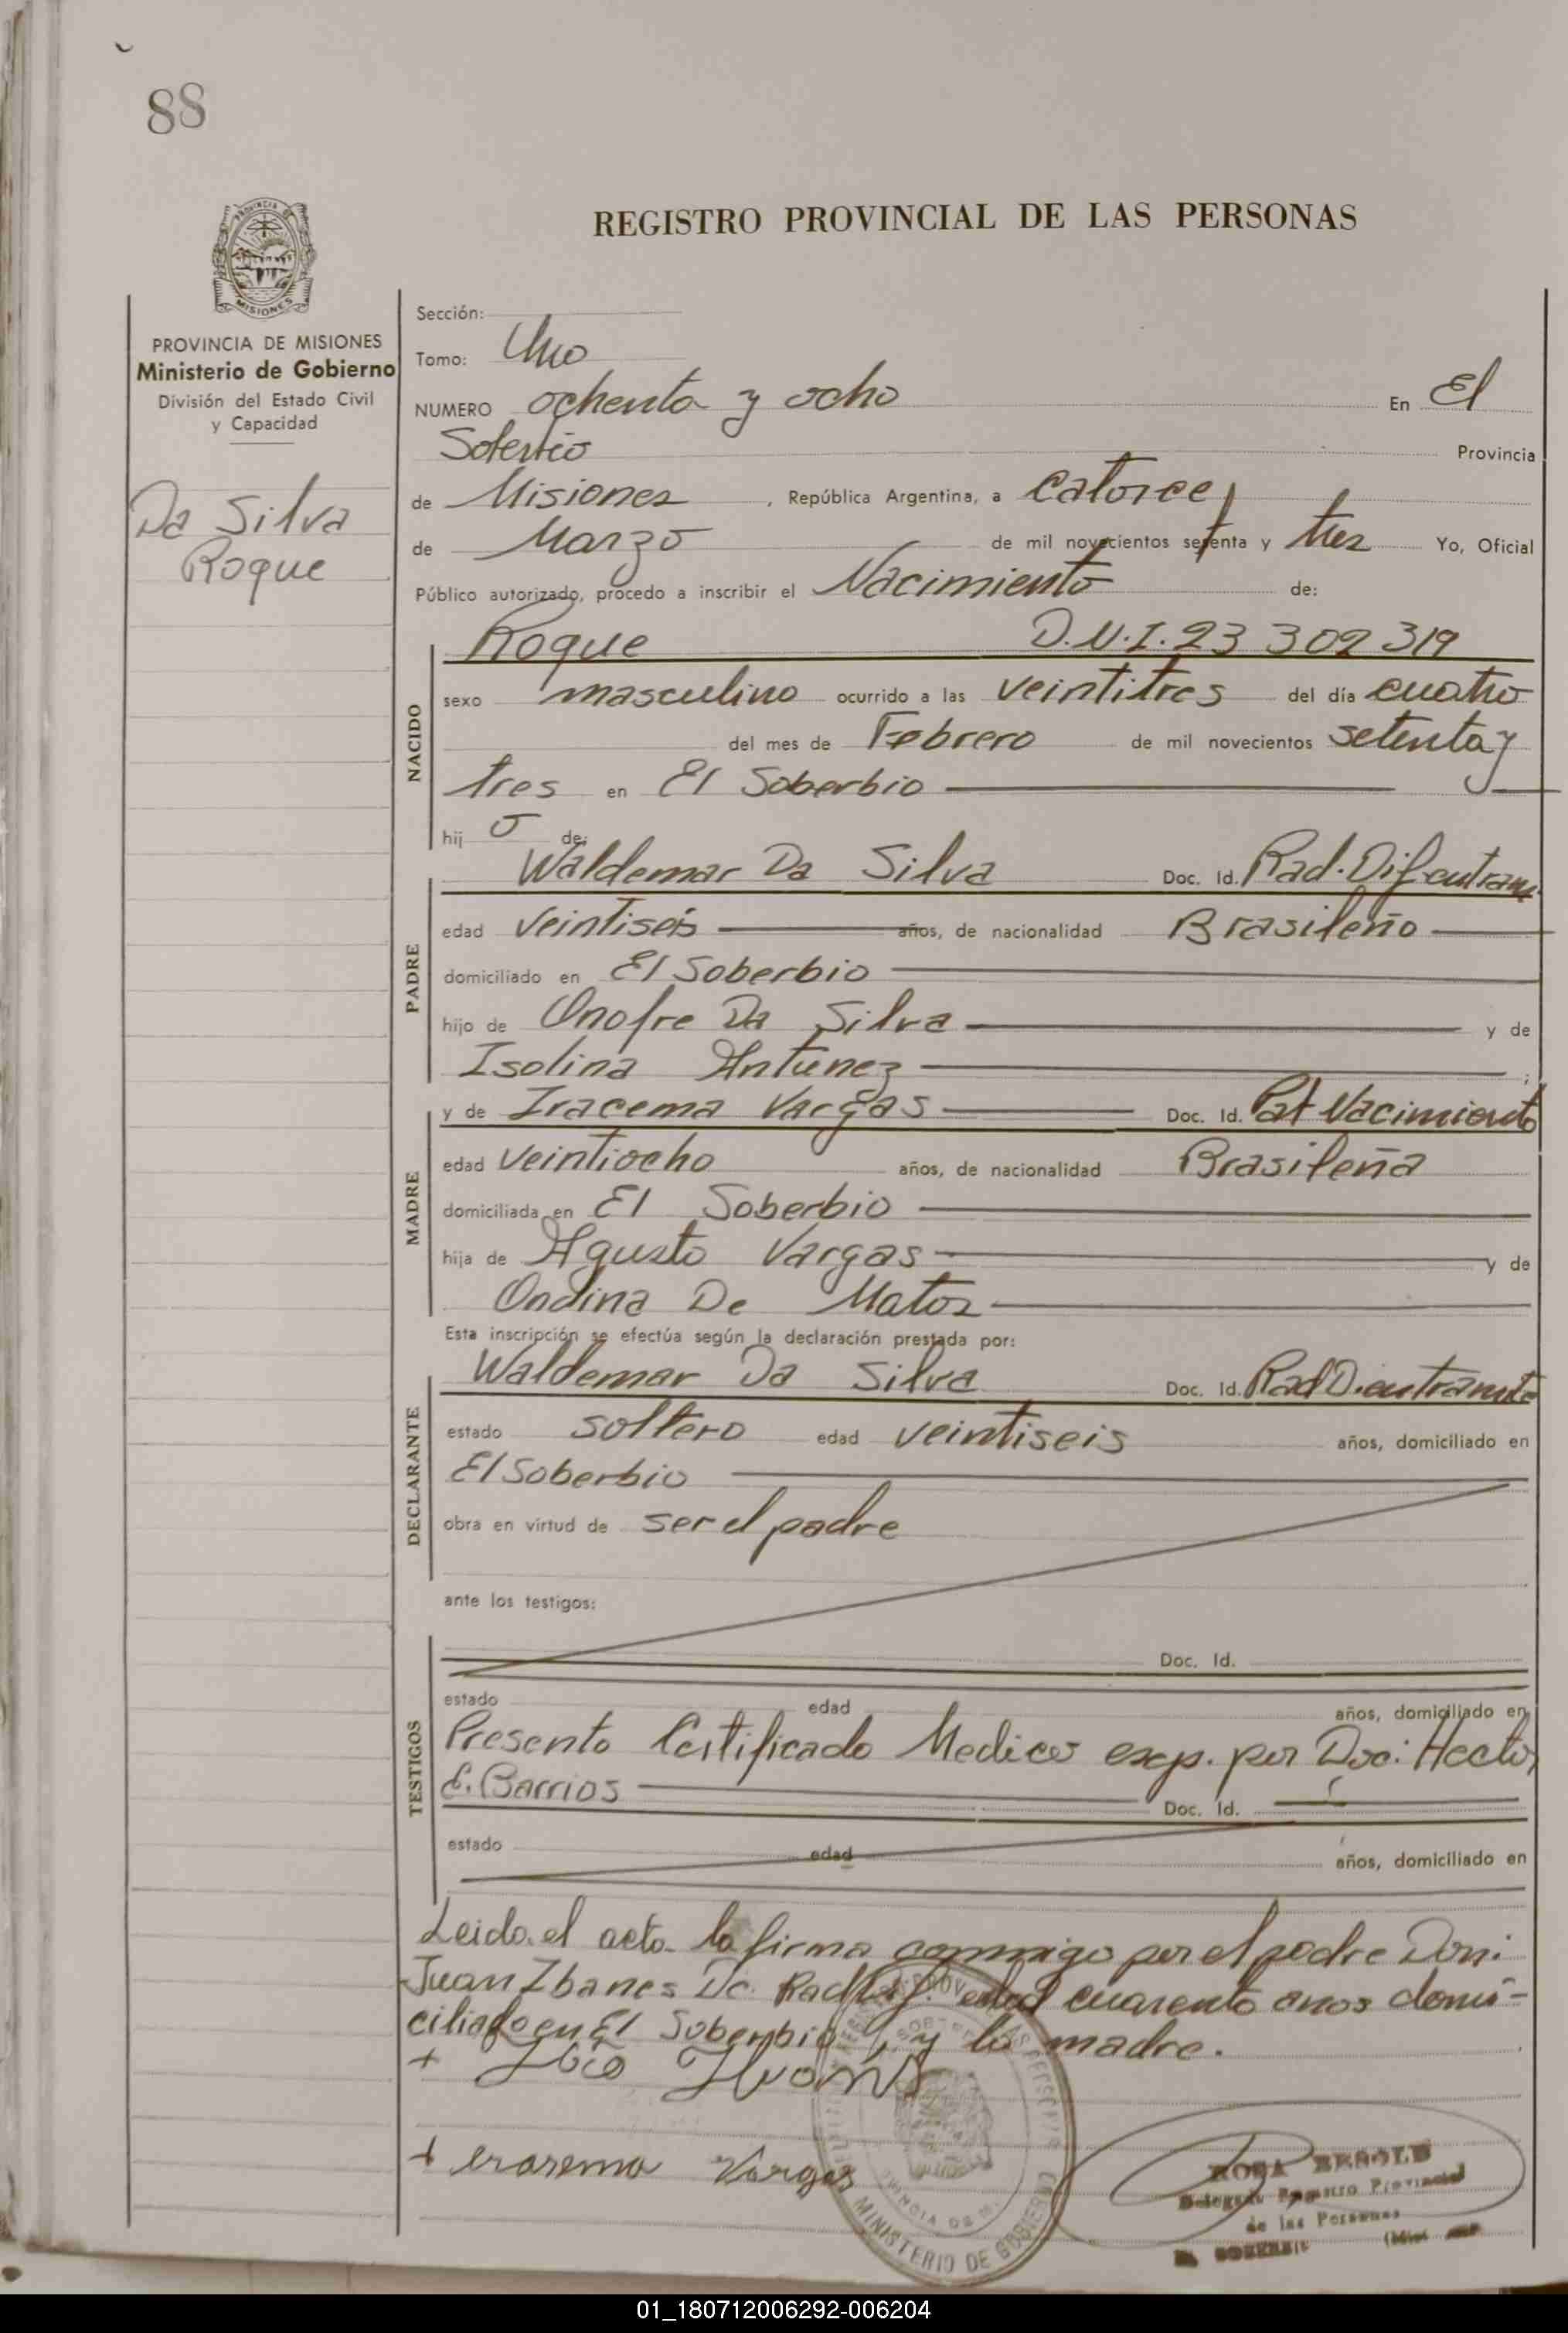 88
REGISTRO PROVINCIAL DE LAS PERSONAS
PROVINCIA DE
MISIONES
PROVINCIA DE MISIONES
Ministerio de Gobierno
División del Estado Civil
y Capacidad
Da Silva
Roque
Sección:
Tomo: Uno
NUMERO ochenta y ocho En El
Soberbio Provincia
de Misiones , República Argentina, a catorce
de Marzo de mil novecientos setenta y tres Yo, Oficial
Público autorizado, procedo a inscribir el Nacimiento de:
Roque D.N.I. 23 302 319
NACIDO
sexo masculino ocurrido a las veintitres del día cuatro
del mes de Febrero de mil novecientos setenta y
tres en El Soberbio
hij o de:
Waldemar Da Silva Doc. Id. Rad. Dif en tram
PADRE
edad veintiseis años, de nacionalidad Brasileño
domiciliado en El Soberbio
hijo de Onofre Da Silva y de
Isolina Antunez ;
y de Iracema Vargas Doc. Id. Part Nacimiento
MADRE
edad veintiocho años, de nacionalidad Brasileña
domiciliada en El Soberbio
hija de Agusto Vargas y de
Ondina De Matos
Esta inscripción se efectúa según la declaración prestada por:
Waldemar Da Silva Doc. Id. Rad D. en tramite
DECLARANTE
estado soltero edad veintiseis años, domiciliado en
El Soberbio
obra en virtud de ser el padre
ante los testigos:
Doc. Id.
TESTIGOS
estado edad años, domiciliado en
Presento Certificado Medico exp. por Doc: Hector
E. Barrios Doc. Id.
estado edad años, domiciliado en
Leida el acta la firma conmigo por el padre Don:
Juan Ibanes Dc. Rad Dif. edad cuarenta anos domi-
ciliado en El Soberbio, y la madre.
+
+ erasema Vargas
MINISTERIO DE GOBIERNO
ROSA BESOLD
Delegada Registro Provincial
de las Personas
EL SOBERBIO
01_180712006292-006204